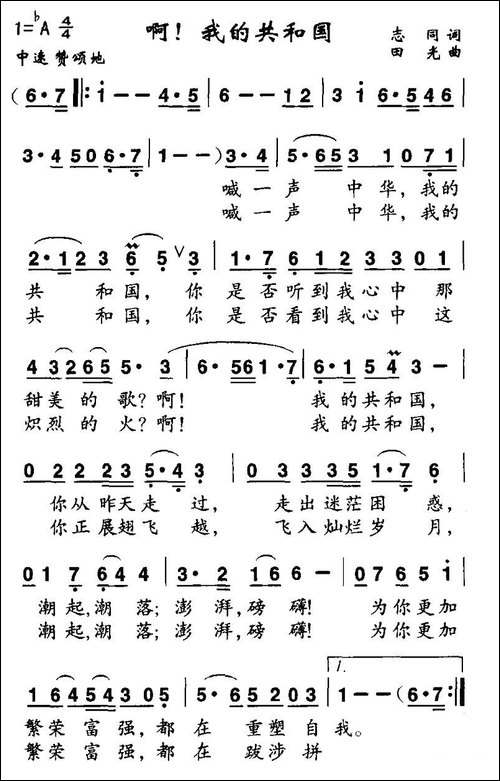 1=♭A 4/4 啊！我的共和国 志同词
中速 赞颂地 田光曲
(6·7 ‖: i - - 4·5 | 6 - - 1 2 | 3 i 6·5 4 6 |
3·4 5 0 6·7 | 1 - - ) 3·4 | 5·6 5 3 1 0 7 1 |
喊一声 中华，我的
喊一声 中华，我的
2·1 2 3 6 5 ∨ 3 | 1·7 6 1 2 3 3 0 1 |
共 和国，你 是否听到我心中 那
共 和国，你 是否看到我心中 这
4 3 2 6 5 5· 3 | 6· 5 6 1 ·7 | 6·1 5 4 3 - |
甜美的歌？啊！ 我的共和国，
炽烈的火？啊！ 我的共和国，
0 2 2 2 2 3 5·4 3 | 0 3 3 3 3 5 1·7 6 |
你从昨天走过， 走出迷茫困惑，
你正展翅飞越， 飞入灿烂岁月，
0 1 7 6 4 4 | 3· 2 1 6 6 - | 0 7 6 5 i |
潮起，潮落；澎湃，磅礴！ 为你更加
潮起，潮落；澎湃，磅礴！ 为你更加
1 6 4 5 4 3 0 5 | 5· 6 5 2 0 3 | 1. 1 - - (6·7 :‖
繁荣富强，都在 重塑自我。
繁荣富强，都在 跋涉拼